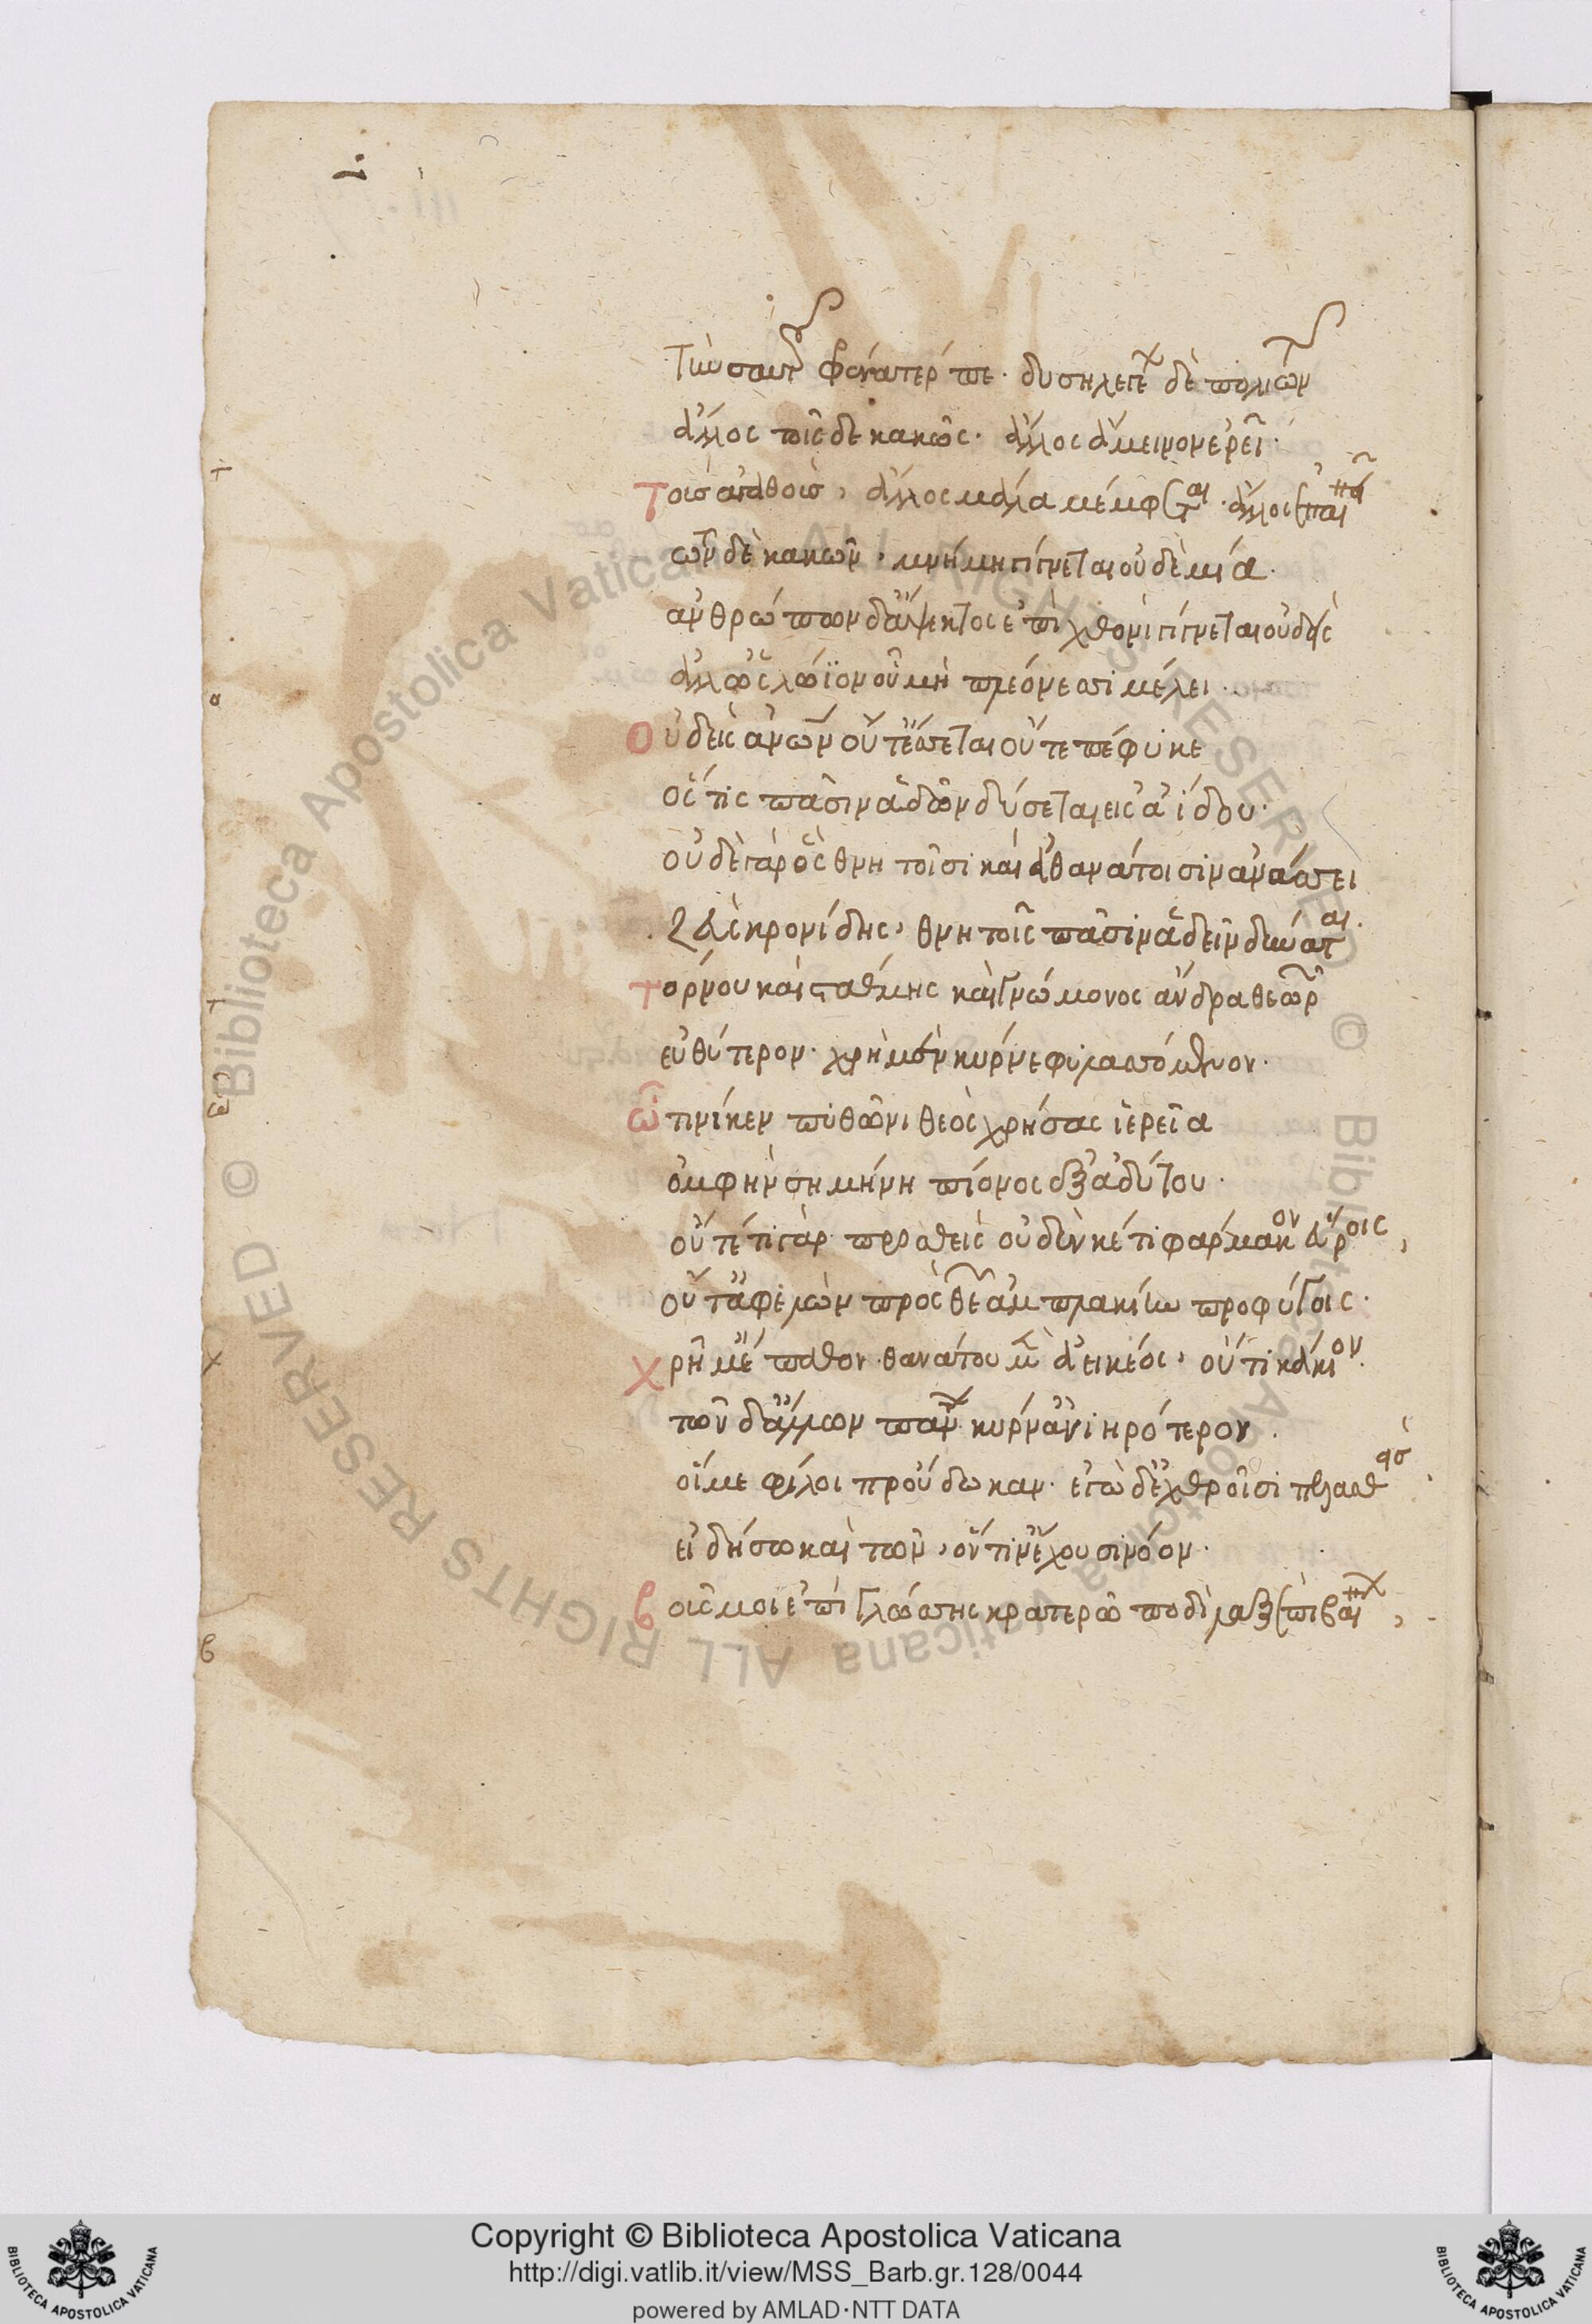 τὴν σαυτοῦ φρένα τέρπε· δυσηλεγέων δὲ πολιτῶν
ἄλλος τοίς δε κακῶς· ἄλλος ἄμεινον ἐρεῖ·
Τοὺς ἀγαθοὺς, ἄλλος μάλα μέμφεται· ἄλλος ἐπαινεῖ
τῶν δὲ κακῶν, μνήμη γίγνεται οὐδὲ μία·
ἀνθρώπων δ' ἄψεκτος ἐπὶ χθονὶ γίγνεται οὐδεὶς
ἀλλ' ὣς λώϊον οὗ μὴ πλεόνεσσι μέλει·
Οὐδεὶς ἀνθρώπων οὔτ' ἔσσεται οὔτε πέφυκε
ὅς τις πᾶσιν ἁδὼν δύσεται εἰς ἀΐδου·
οὐδὲ γὰρ ὃς θνητοῖσι καὶ ἀθανάτοισιν ἀνάσσει
Ζεὺς κρονίδης, θνητοῖς πᾶσιν ἁδεῖν δύναται·
Τόρνου καὶ στάθμης καὶ γνώμονος ἄνδρα θεωρὸν
εὐθύτερον· χρὴ μὲν κύρνε φυλασσόμενον·
ᾧ τινί κεν πυθῶνι θεὸς χρήσας ἱερεῖα
ὀμφὴν σημήνῃ πίονος ἐξ ἀδύτου·
οὔτέ τι γὰρ προσθεὶς οὐδὲν κέτι φάρμακον εὕροις,
οὔτ' ἀφελὼν πρὸς θεῶν ἀμπλακίην προφύγοις·
Χρῆμ' ἔπαθον θανάτου μὲν ἀεικέος, οὔτι κάκιον·
τῶν δ' ἄλλων πάντων κύρν' ἀνιηρότερον·
οἵ με φίλοι προὔδωκαν· ἐγὼ δ' ἐχθροῖσι πελασθεὶς
εἰδήσω καὶ τῶν, ὅντιν' ἔχουσι νόον·
Βοῦς μοι ἐπὶ γλώσσης κρατερῷ ποδὶ λὰξ ἐπιβαίνων,
Copyright © Biblioteca Apostolica Vaticana
http://digi.vatlib.it/view/MSS_Barb.gr.128/0044
powered by AMLAD·NTT DATA